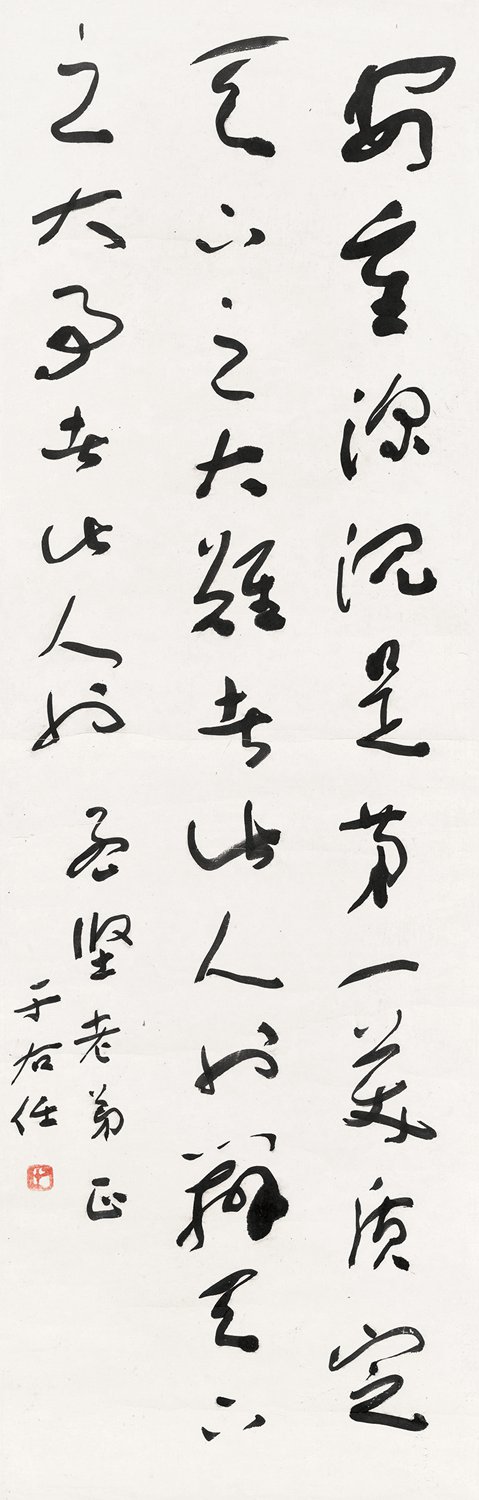 安重深沈是第一美質定
天下之大難者此人也辦天下
之大事者此人也
孟堅老弟正
于右任